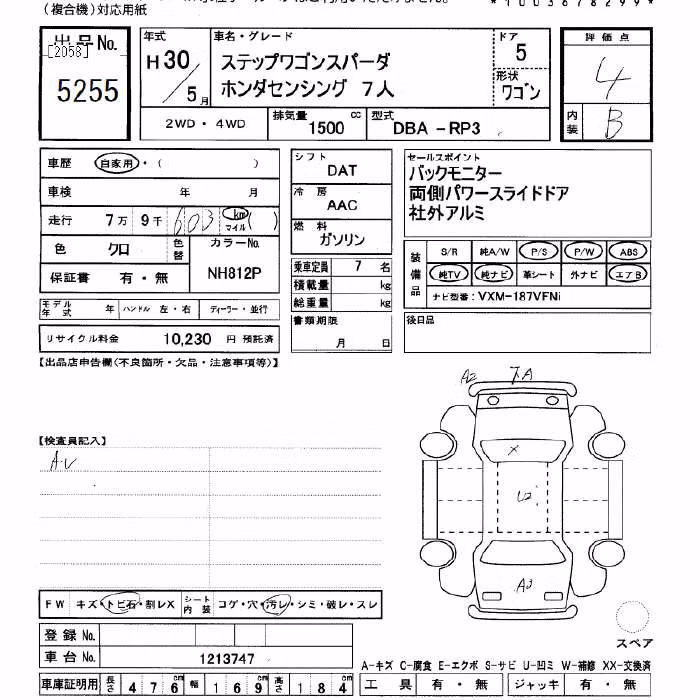 (複合機)対応用紙
*1003678299*
出品No.
[2058]
5255
年式
H30/5月
車名・グレード
ステップワゴンスパーダ
ホンダセンシング 7人
ドア
5
形状
ワゴン
2WD・4WD
排気量
1500 cc
型式
DBA -RP3
評価点
4
内装
B
車歴 自家用・( )
車検 年 月
走行 7万 9千 603 km マイル ( )
色 クロ
色替
カラーNo.
NH812P
保証書 有・無
モデル年式 年
ハンドル 左・右
ディーラー・並行
リサイクル料金 10,230 円 預託済
シフト
DAT
冷房
AAC
燃料
ガソリン
乗車定員 7 名
積載量 kg
総重量 kg
書類期限
月 日
セールスポイント
バックモニター
両側パワースライドドア
社外アルミ
装備品
S/R 純A/W P/S P/W ABS
純TV 純ナビ 革シート 外ナビ エアB
ナビ型番:VXM-187VFNi
後日品
【出品店申告欄(不良箇所・欠品・注意事項等)】
【検査員記入】
A.U
A2
X
U2
A3
FW キズ・トビ石・割レX
シート内装 コゲ・穴・汚レ・シミ・破レ・スレ
登録No.
車台No. 1213747
車庫証明用 長さ 476cm 幅 169cm 高さ 184
スペア
A-キズ C-腐食 E-エクボ S-サビ U-凹ミ W-補修 XX-交換済
工具 有・無 ジャッキ 有・無